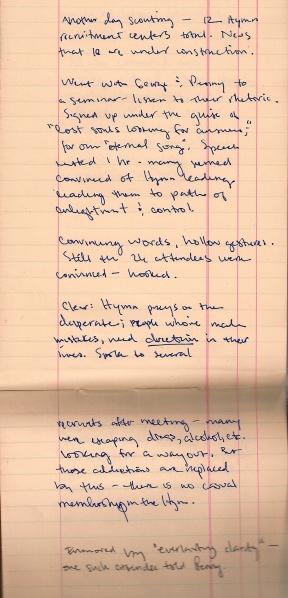 Another day scouting – 12 Hymn
recruitment centers total. News
that 18 are under construction.
Went with George & Penny to
a seminar – listen to their rhetoric.
Signed up under the guise of
"lost souls looking for answers,"
for our "eternal song". Speech
lasted 1 hr – many seemed
convinced of Hymn leading
leading them to path of
enlightment & control
Convincing words, hollow gestures.
Still the 24 attendees were
convinced – hooked.
Clear: Hymn preys on the
desperate; people whove made
mistakes, need direction in their
lives. Spoke to several
recruits after meeting – many
were escaping drugs, alcohol, etc.
looking for a way out. But
those addictions are replaced
by this – there is no casual
membership in the Hymn.
"everlasting clarity" –
one such attendee told Penny.